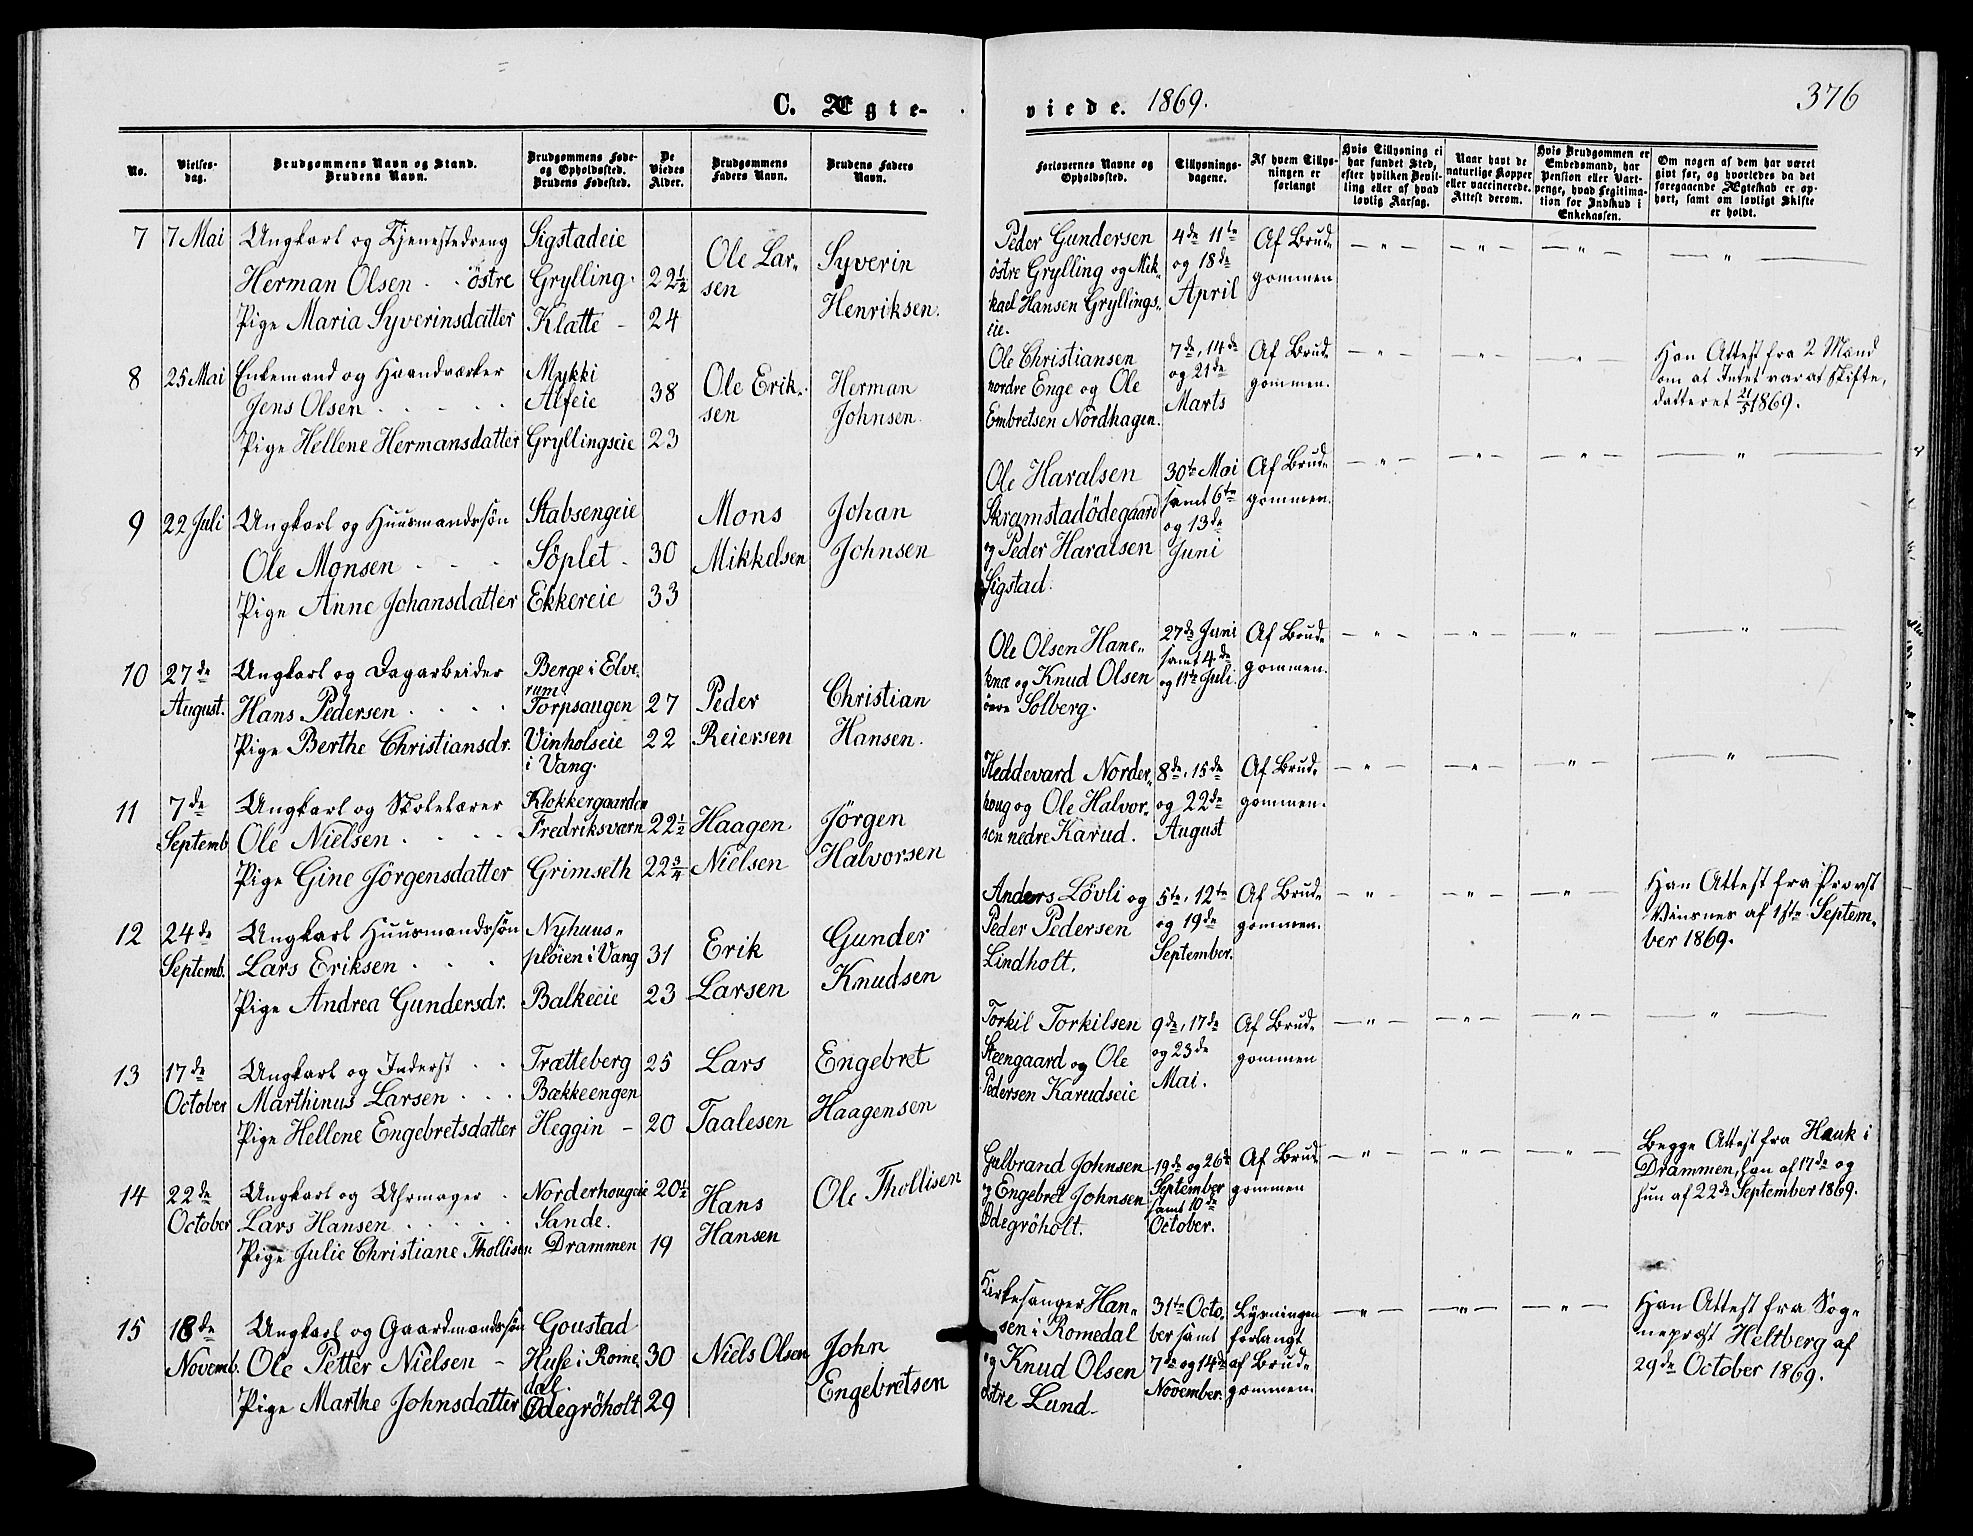 C. Ægte-
viede. 1869.
376
No.
Vielses-
dag.
Brudgommens Navn og Stand.
Brudens Navn.
Brudgommens Føde-
og Opholdssted.
Brudens Fødested.
De
Viedes
Alder.
Brudgommens
Faders Navn.
Brudens Faders
Navn.
Forlovernes Navne og
Opholdssted.
Tillysnings-
dagene.
Af hvem Tillys-
ningen er
forlangt
Hvis Tillysning ei
har fundet Sted,
efter hvilken Bevil-
ling eller af hvad
lovlig Aarsag.
Naar havt de
naturlige Kopper
eller vaccinerede.
Attest derom.
Hvis Brudgommen er
Embedsmand, har
Pension eller Vart-
penge, hvad Legitima-
tion for Indskud i
Enkekassen.
Om nogen af dem har været
gift før, og hvorledes da det
foregaaende Ægteskab er op-
hørt, samt om lovligt Skifte
er holdt.
7
7 Mai
Ungkarl og Tjenestedreng
Herman Olsen . . östre
Pige Maria Syverinsdatter
Sigstadeie
Grylling.
Klatte -
22½
24
Ole Lar-
sen
Syverin
Henriksen.
Peder Gundersen
östre Grylling og Mik-
kael Hansen Gryllings-
eie.
4de 11te
og 18de
April
Af Brud-
gommen
— " —
— " —
— " —
— " —
8
25 Mai
Enkemand og Haandværker
Jens Olsen . . . . .
Pige Hellene Hermansdatter
Mykki
Alfeie
Gryllingseie
38
23
Ole Erik-
sen
Herman
Johnsen.
Ole Christiansen
nordre Enge og Ole
Embretsen Nordhagen.
7de, 14de
og 21de
Marts
Af Brud-
gommen.
— " —
— " —
— " —
Han Attest fra 2 Mænd
Som at Intet var at skifte,
datteret 21/5 1869.
9
22 Juli
Ungkarl og Huusmandssön
Ole Monsen . - -
Pige Anne Johansdatter
Stabsengeie
Söplet -
Ekkereie
30
33
Mons
Mikkelsen
Johan
Johnsen
Ole Haralsen
Skramstadödegaard
og Peder Haralsen
Sigstad.
30te Mai
samt 6te
og 13de
Juni
Af Brud-
gommen.
— " —
— " —
— " —
— " —
10
27de
August.
Ungkarl og Dagarbeider
Hans Pedersen . . . .
Pige Berthe Christiansdr.
Berge i Elve-
rum
Torpsaugen
Vinholseie
i Vang.
27
22
Peder
Reiersen
Christian
Hansen.
Ole Olsen Hane-
knæ og Knud Olsen
övre Solberg.
27de Juni
samt 4de
og 11te Juli.
Af Brud-
gommen.
— " —
— " —
— " —
— " —
11
7de
Septemb.
Ungkarl og Skolelærer
Ole Nielsen . . . .
Pige Gine Jörgensdatter
Klokkergaarden
Fredriksværn
Grimseth
22½
22¾
Haagen
Nielsen
Jörgen
Halvorsen
Heddevard Norder-
houg og Ole Halvor-
sen nedre Karud.
8de, 15de
og 22de
August
Af Brud-
gommen.
— " —
— " —
— " —
— " —
12
24de
Septemb.
Ungkarl Huusmandssön
Lars Eriksen . . .
Pige Andrea Gundersdr.
Nyhuus-
plöien i Vang
Balkeeie
31
23
Erik
Larsen
Gunder
Knudsen
Anders Lövli og
Peder Pedersen
Lindholt.
5te, 12te
og 19de
September.
Af Brud-
gommen.
— " —
— " —
— " —
Han Attest fra Provst
Vinsnes af 1ste Septem-
ber 1869.
13
17de
October
Ungkarl og Inderst . .
Marthinus Larsen . . .
Pige Hellene Engebretsdatter
Trætteberg
Bækkeengen
Heggin -
25
20
Lars
Taalesen
Engebret
Haagensen
Torkil Torkilsen
Steengaard og Ole
Pedersen Karudseie
9de, 17de
og 23de
Mai.
Af Brud-
gommen
— " —
— " —
— " —
— " —
14
22de
October
Ungkarl og Uhrmager .
Lars Hansen . . . . .
Pige Julie Christiane Thollisen
Norderhougeie
Sande.
Drammen
20½
19
Hans
Hansen
Ole Thollisen
Gulbrand Johnsen
og Engebret Johnsen
Ödegröholt.
19de og 26de
September
samt 10de
October.
Af Brud-
gommen
— " —
— " —
— " —
Begge Attest fra Hauk i
Drammen, han af 17de og
hun af 22de September 1869.
15
18de
Novemb.
Ungkarl og Gaardmandssön
Ole Petter Nielsen -
Pige Marthe Johnsdatter
Goustad
Huse i Rome-
dal.
Ödegröholt
30
29
Niels Olsen
John
Engebretsen
Kirkesanger Han-
sen i Romedal
og Knud Olsen
östre Lund.
31te Octo-
ber samt
7de og 14de
November.
Lysningen
forlangt
af Brud-
gommen.
— " —
— " —
— " —
Han Attest fra Sog-
nepræst Heltberg af
29de October 1869.